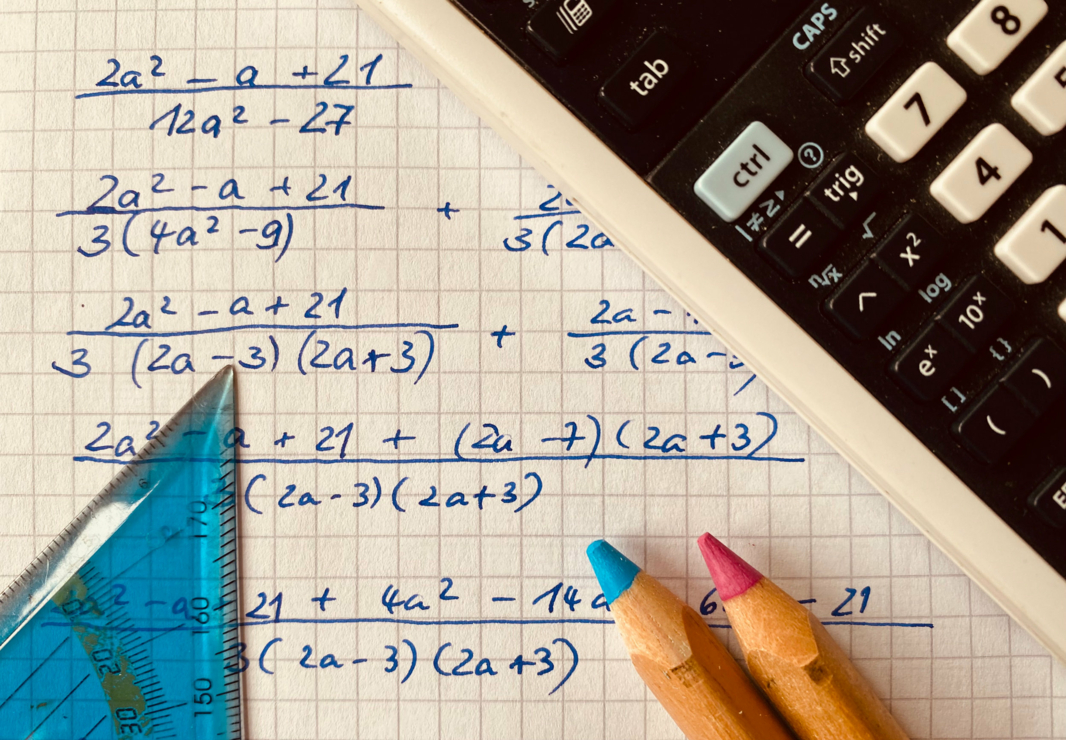 2a² - a + 21
12a² - 27
2a² - a + 21
3(4a² - 9)
+
3(2a
2a² - a + 21
3 (2a - 3)(2a + 3)
+
2a -
3 (2a -
2a² - a + 21 + (2a - 7)(2a + 3)
(2a - 3)(2a + 3)
² - a 21 + 4a² - 14a 6 - 21
3(2a - 3)(2a + 3)
170
160
150
CAPS
⇧shift
8
tab
7
ctrl
?
4
trig
|≠≥▸
=
√
1
x²
ⁿ√x
^
log
10ˣ
ln
eˣ
{}
)
[]
(